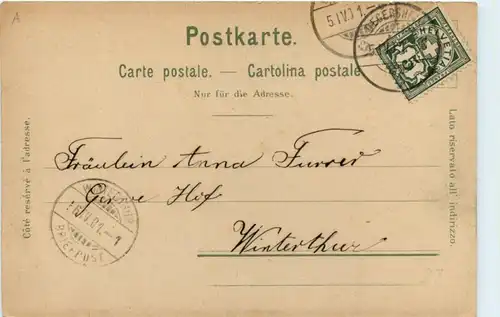 A
Postkarte.
Carte postale. — Cartolina postale.
Nur für die Adresse.
5.IV.01-1
DEGERSHEIM
HELVETIA
5
Côté reservé à l'adresse.
Lato riservato all' indirizzo.
Fräulein Anna Furrer
Hof
Winterthur
WINTERTHUR
BRIEFPOST